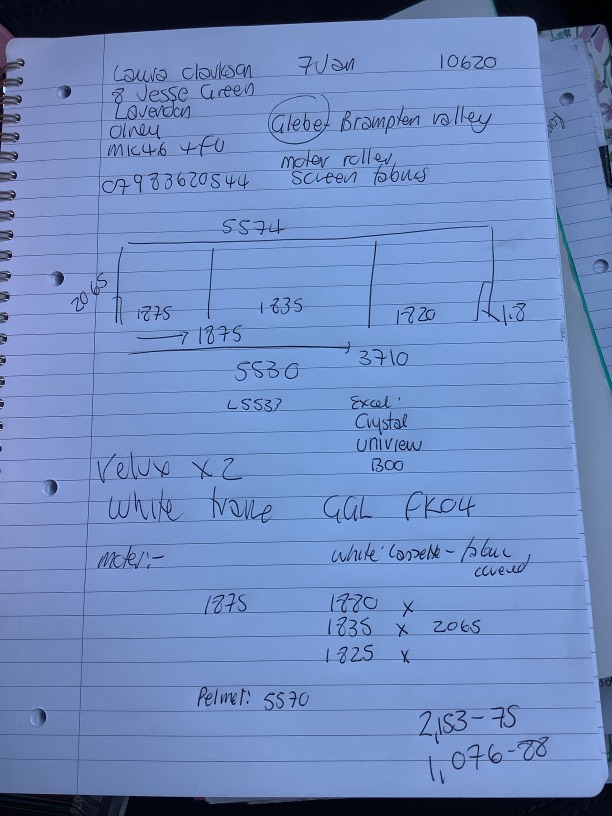 Laura Clarkson 7 Jan 10620
8 Jesse Green
Lavendon
Olney Glebe - Brampton valley
MK46 4FU
motor roller
07983620544 screen fabrics
5574
2065
1875 1835 1820 1.8
→ 1875
→ 3710
5530
L5537
Excel:
Crystal
Uniview
BOO
Velux x 2
White frame GGL FK04
Motor:- White Cassette - fabric
covered
1875 1880 x
1835 x 2065
1825 x
Pelmet: 5570
2,153-75
1,076-88